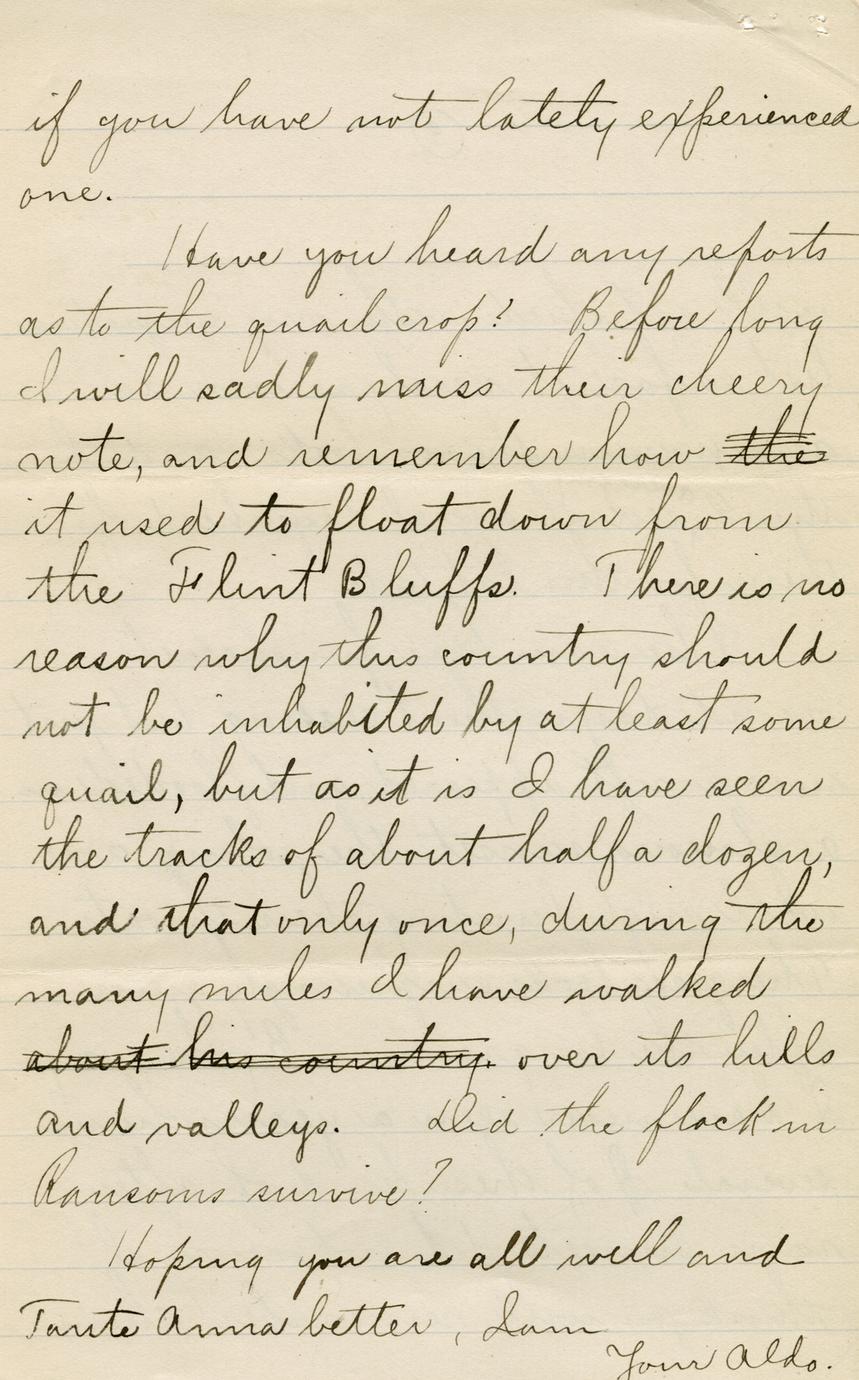 if you have not lately experienced
one.
Have you heard any reports
as to the quail crop? Before long
I will sadly miss their cheery
note, and remember how the
it used to float down from
the Flint Bluffs. There is no
reason why this country should
not be inhabited by at least some
quail, but as it is I have seen
the tracks of about half a dozen,
and that only once, during the
many miles I have walked
about his country. over its hills
and valleys. Did the flock in
Ransoms survive?
Hoping you are all well and
Tante Anna better, I am
Your Aldo.